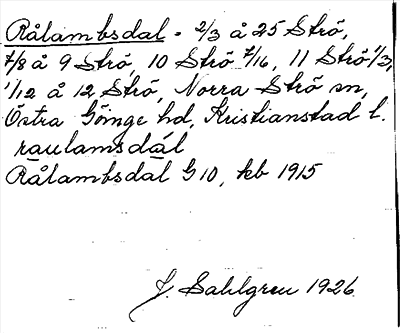 Rålambsdal - 2/3 å 25 Strö,
7/8 å 9 Strö, 10 Strö 7/16, 11 Strö 1/3,
1/12 å 12 Strö, Norra Strö sn,
Östra Göinge hd, Kristianstad l.
raulamsdál
Rålambsdal G10, kb 1915
J. Sahlgren 1926